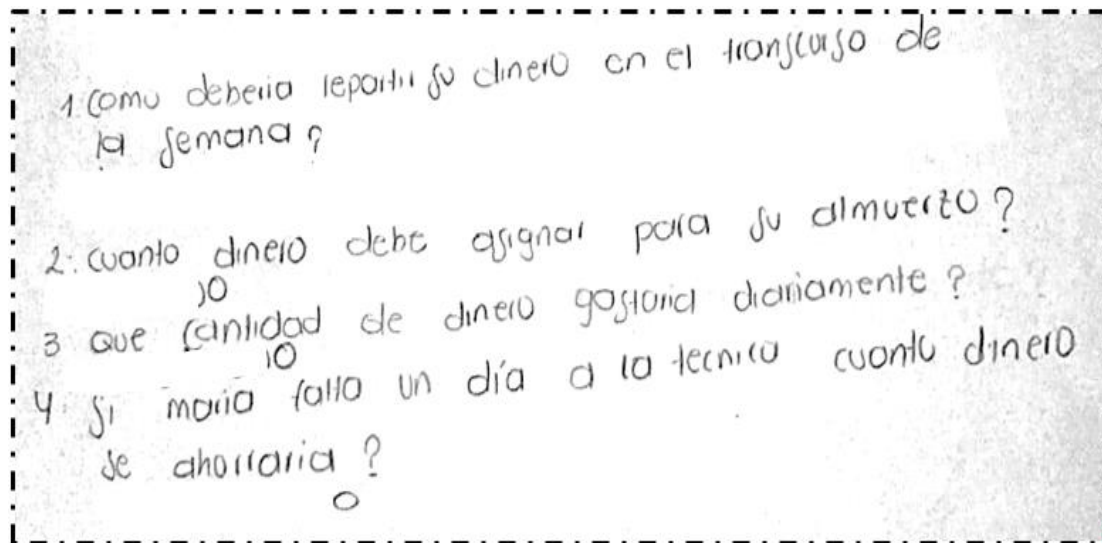 1. como deberia repartir su dinero en el transcurso de
la semana?
2. cuanto dinero debe asignar para su almuerzo?
10
3 que cantidad de dinero gastaria diariamente?
10
4. si maria falta un día a la tecnica cuanto dinero
se ahorraria?
0